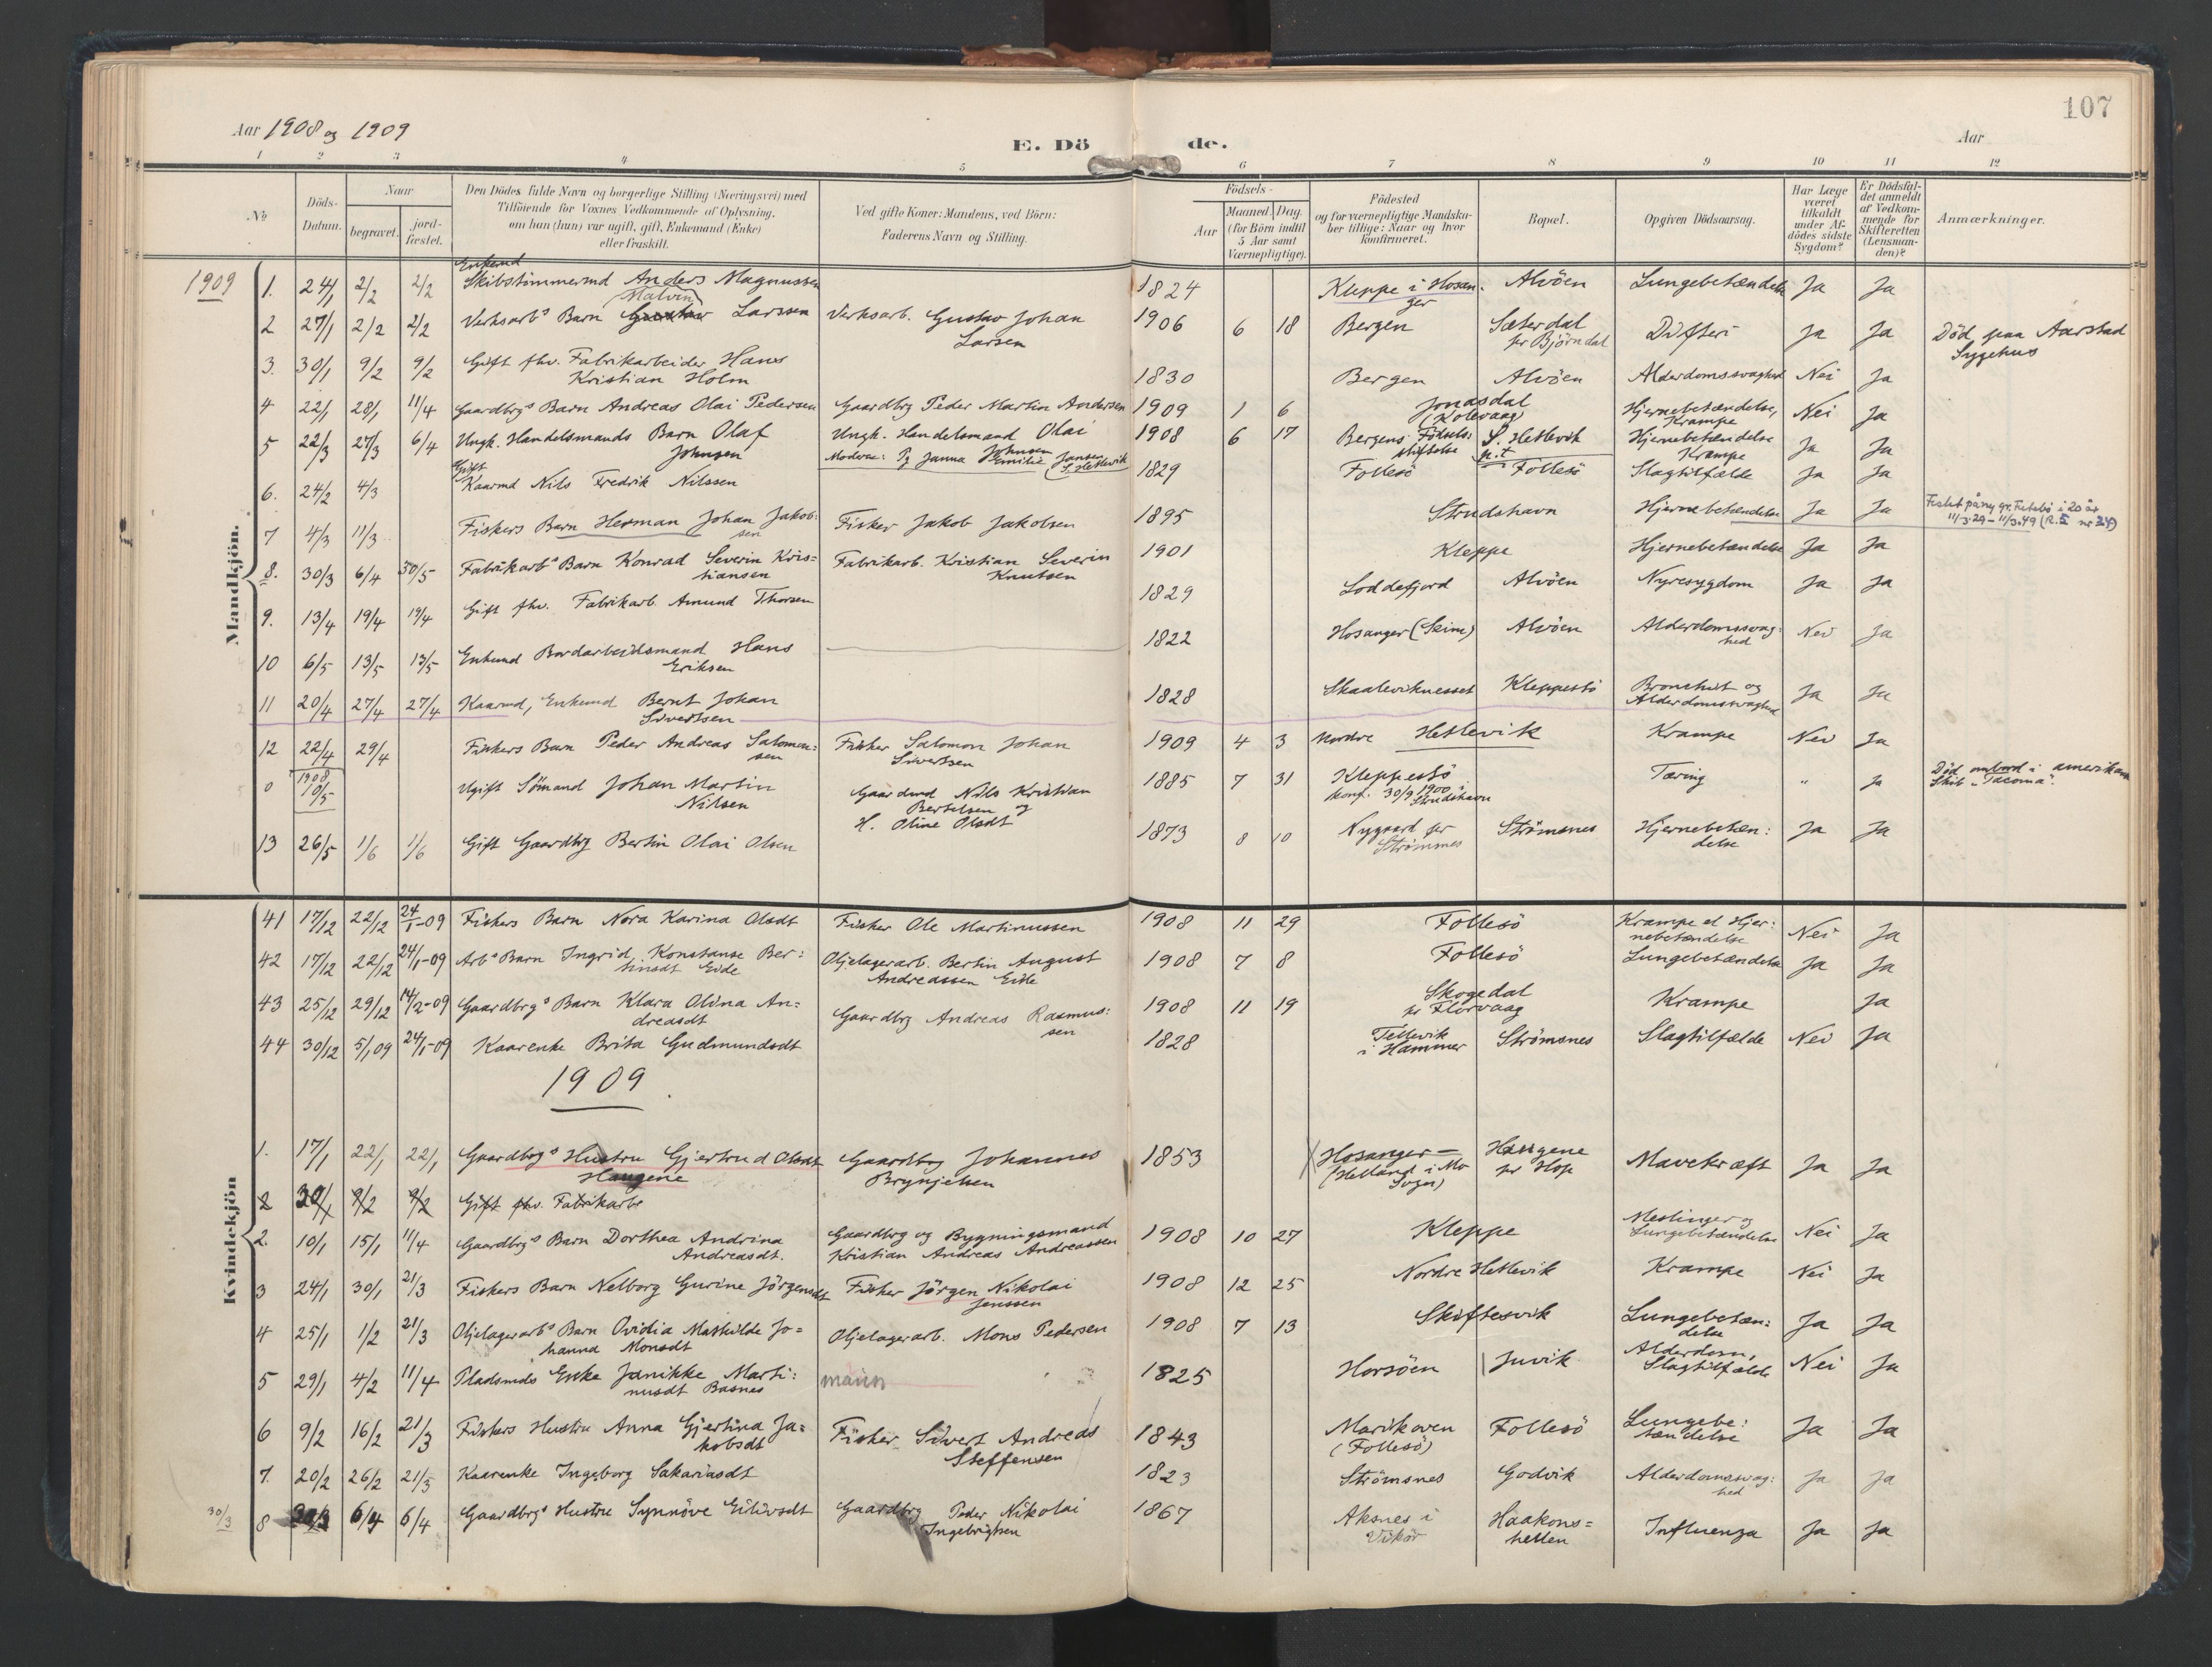 107
Aar 1908 og 1909
E. Döde.
Aar
1 2 3 4 5 6 7 8 9 10 11 12
No
Döds-Datum.
Naar
begravet.
jord-fæstet.
Den Dödes fulde Navn og borgerlige Stilling (Næringsvei) med
Tilföiende for Voxnes Vedkommende af Oplysning,
om han (hun) var ugift, gift, Enkemand (Enke)
eller fraskilt.
Ved gifte Koner: Mandens, ved Börn:
Faderens Navn og Stilling.
Födsels-
Aar
Maaned Dag
(for Börn indtil
5 Aar samt
Værnepligtige).
Födested
og for værnepligtige Mandska-
ber tillige: Naar og hvor
konfirmeret.
Bopæl.
Opgiven Dödsaarsag.
Har Læge
været
tilkaldt
under Af-
dödes sidste
Sygdom?
Er Dödsfal-
det anmeldt
af Vedkom-
mende for
Skifteretten
(Lensman-
den)?
Anmærkninger.
Mandkjön.
1909
1. 24/1 2/2 2/2 Enkemd Skibstömmermd Anders Magnussen 1824 Kleppe i Hosanger Alvöen Lungebetændelse Ja Ja
2 27/1 2/2 2/2 Verksarbs Barn Malvin Larssen Verksarb. Gustav Johan Larsen 1906 6 18 Bergen Sæterdal pr Björndal Difteri Ja Ja Död paa Aarstad Sygehus
3. 30/1 9/2 9/2 Gift fhv. Fabrikarbeider Hans Kristian Holm 1830 Bergen Alvöen Alderdomssvaghed Nei Ja
4 22/1 28/1 11/4 Gaardbrgs Barn Andreas Olai Pedersen Gaardbrg Peder Martin Andersen 1909 1 6 Jonasdal (Kolevaag) Hjernebetændelse, Krampe Nei Ja
5 22/3 27/3 6/4 Ungk. Handelsmands Barn Olaf Johnsen Ungk. Handelsmand Olai Johnsen Moderen: Pg Janna Emilie Jansen S. Hetlevik 1908 6 17 Bergens Födselsstiftelse S. Hetlevik p.t Hjernebetændelse Krampe Ja Ja
6. 24/2 4/3 Gift Kaarmd Nils Fredrik Nilssen 1829 Follesö Follesö Slagtilfælde Ja Ja
7 4/3 11/3 Fiskers Barn Herman Johan Jakobsen Fisker Jakob Jakobsen 1895 Strudshavn Hjernebetændelse Ja Ja Festet på ny gr. Festebö i 20 år 11/3.29 – 11/3.49 (R. I nr 24)
8. 30/3 6/4 30/5 Fabrikarbs Barn Konrad Severin Kris=tiansen Fabrikarb. Kristian Severin Knutsen 1901 Kleppe Hjernebetændelse Ja Ja
9. 13/4 19/4 19/4 Gift fhv. Fabrikarb. Amund Thorsen 1829 Loddefjord Alvöen Nyresygdom Ja Ja
10 6/5 13/5 13/5 Enkemd Bordarbeidsmand Hans Eriksen 1822 Hosanger (Skine) Alvöen Alderdomssvag:hed Nei Ja
11 20/4 27/4 27/4 Kaarmd, Enkemd Bernt Johan Sivertsen 1828 Skaaleviknesset Kleppestö Bronchit og Alderdomssvaghed Ja Ja
12 22/4 29/4 Fiskers Barn Peder Andreas Salomon:sen Fisker Salomon Johan Sivertsen 1909 4 3 Nordre Hetlevik Krampe Nei Ja
0 1908 10/5 Ugift Sömand Johan Martin Nilsen Gaardmd Nils Kristian Bertelsen og H. Oline Olsdt 1885 7 31 Kleppestö konf. 30/9 1900 i Strudshavn Tæring " Ja Död ombord i amerikansk Skib „Tacoma".
13 26/5 1/6 1/6 Gift Gaardbrg Bertin Olai Olsen 1873 8 10 Nygaard pr Strömsnes Strömsnes Hjernebetæn:delse Ja Ja
Kvindekjön
41 17/12 22/12 24/1-09 Fiskers Barn Nora Karina Olsdt Fisker Ole Martinussen 1908 11 29 Follesö Krampe el Hjer:nebetændelse Nei Ja
42 17/12 22/12 24/1-09 Arbs Barn Ingrid Konstanse Ber:tinsdt Eide Oljelagerarb. Bertin August Andreassen Eide 1908 7 8 Follesö Lungebetændelse Ja Ja
43 25/12 29/12 14/2-09 Gaardbrgs Barn Klara Olina An=dreasdt Gaardbrg Andreas Rasmus:sen 1908 11 19 Skogedal pr Florvaag Krampe Ja
44 30/12 5/1 09 24/1-09 Kaarenke Brita Gudmundsdt 1828 Tellevik i Hammer Strömsnes Slagtilfælde Nei Ja
1909
1. 17/1 22/1 22/1 Gaardbrgs Hustru Gjertrud Olsdt Haugene Gaardbrg Johannes Brynjelsen 1853 Hosanger – (Helland i Mo Sogn) Haugene pr Hop Mavekræft Ja Ja
2 30/1 9/2 9/2 Gift fhv. Fabrikarb
2. 10/1 15/1 11/4 Gaardbrgs Barn Dorthea Andrina Andreasdt. Gaardbrg og Bygningsmand Kristian Andreas Andreassen 1908 10 27 Kleppe Meslinger og Lungebetændelse Nei Ja
3 24/1 30/1 21/3 Fiskers Barn Nelborg Gurine Jörgensdt Fisker Jörgen Nikolai Jenssen 1908 12 25 Nordre Hetlevik Krampe Nei Ja
4 25/1 1/2 21/3 Oljelagerarbs Barn Ovidia Mathilde Jo=hanna Monsdt Oljelagerarb. Mons Pedersen 1908 7 13 Skiftesvik Lungebetæn:delse Ja Ja
5 29/1 4/2 11/4 Pladsmds Enke Janikke Marti:nusdt Basnes 1825 Horsöen Juvik Alderdom, Slagtilfælde Nei Ja
6 9/2 16/2 21/3 Fiskers Hustru Anna Gjertina Ja=kobsdt Fisker Sivert Andreas Steffensen 1843 Marikoven (Follesö) Follesö Lungebe:tændelse Ja Ja
7. 20/2 26/2 21/3 Kaarenke Ingeborg Sakariasdt 1823 Strömsnes Godvik Alderdomssvag:hed Ja Ja
30/3 8 6/4 6/4 Gaardbrgs Hustru Synnöve Eilivsdt Gaardbrg Peder Nikolai Ingebrigtsen 1867 Aksnes i Vikör Haakons=hellen Influenza Ja Ja